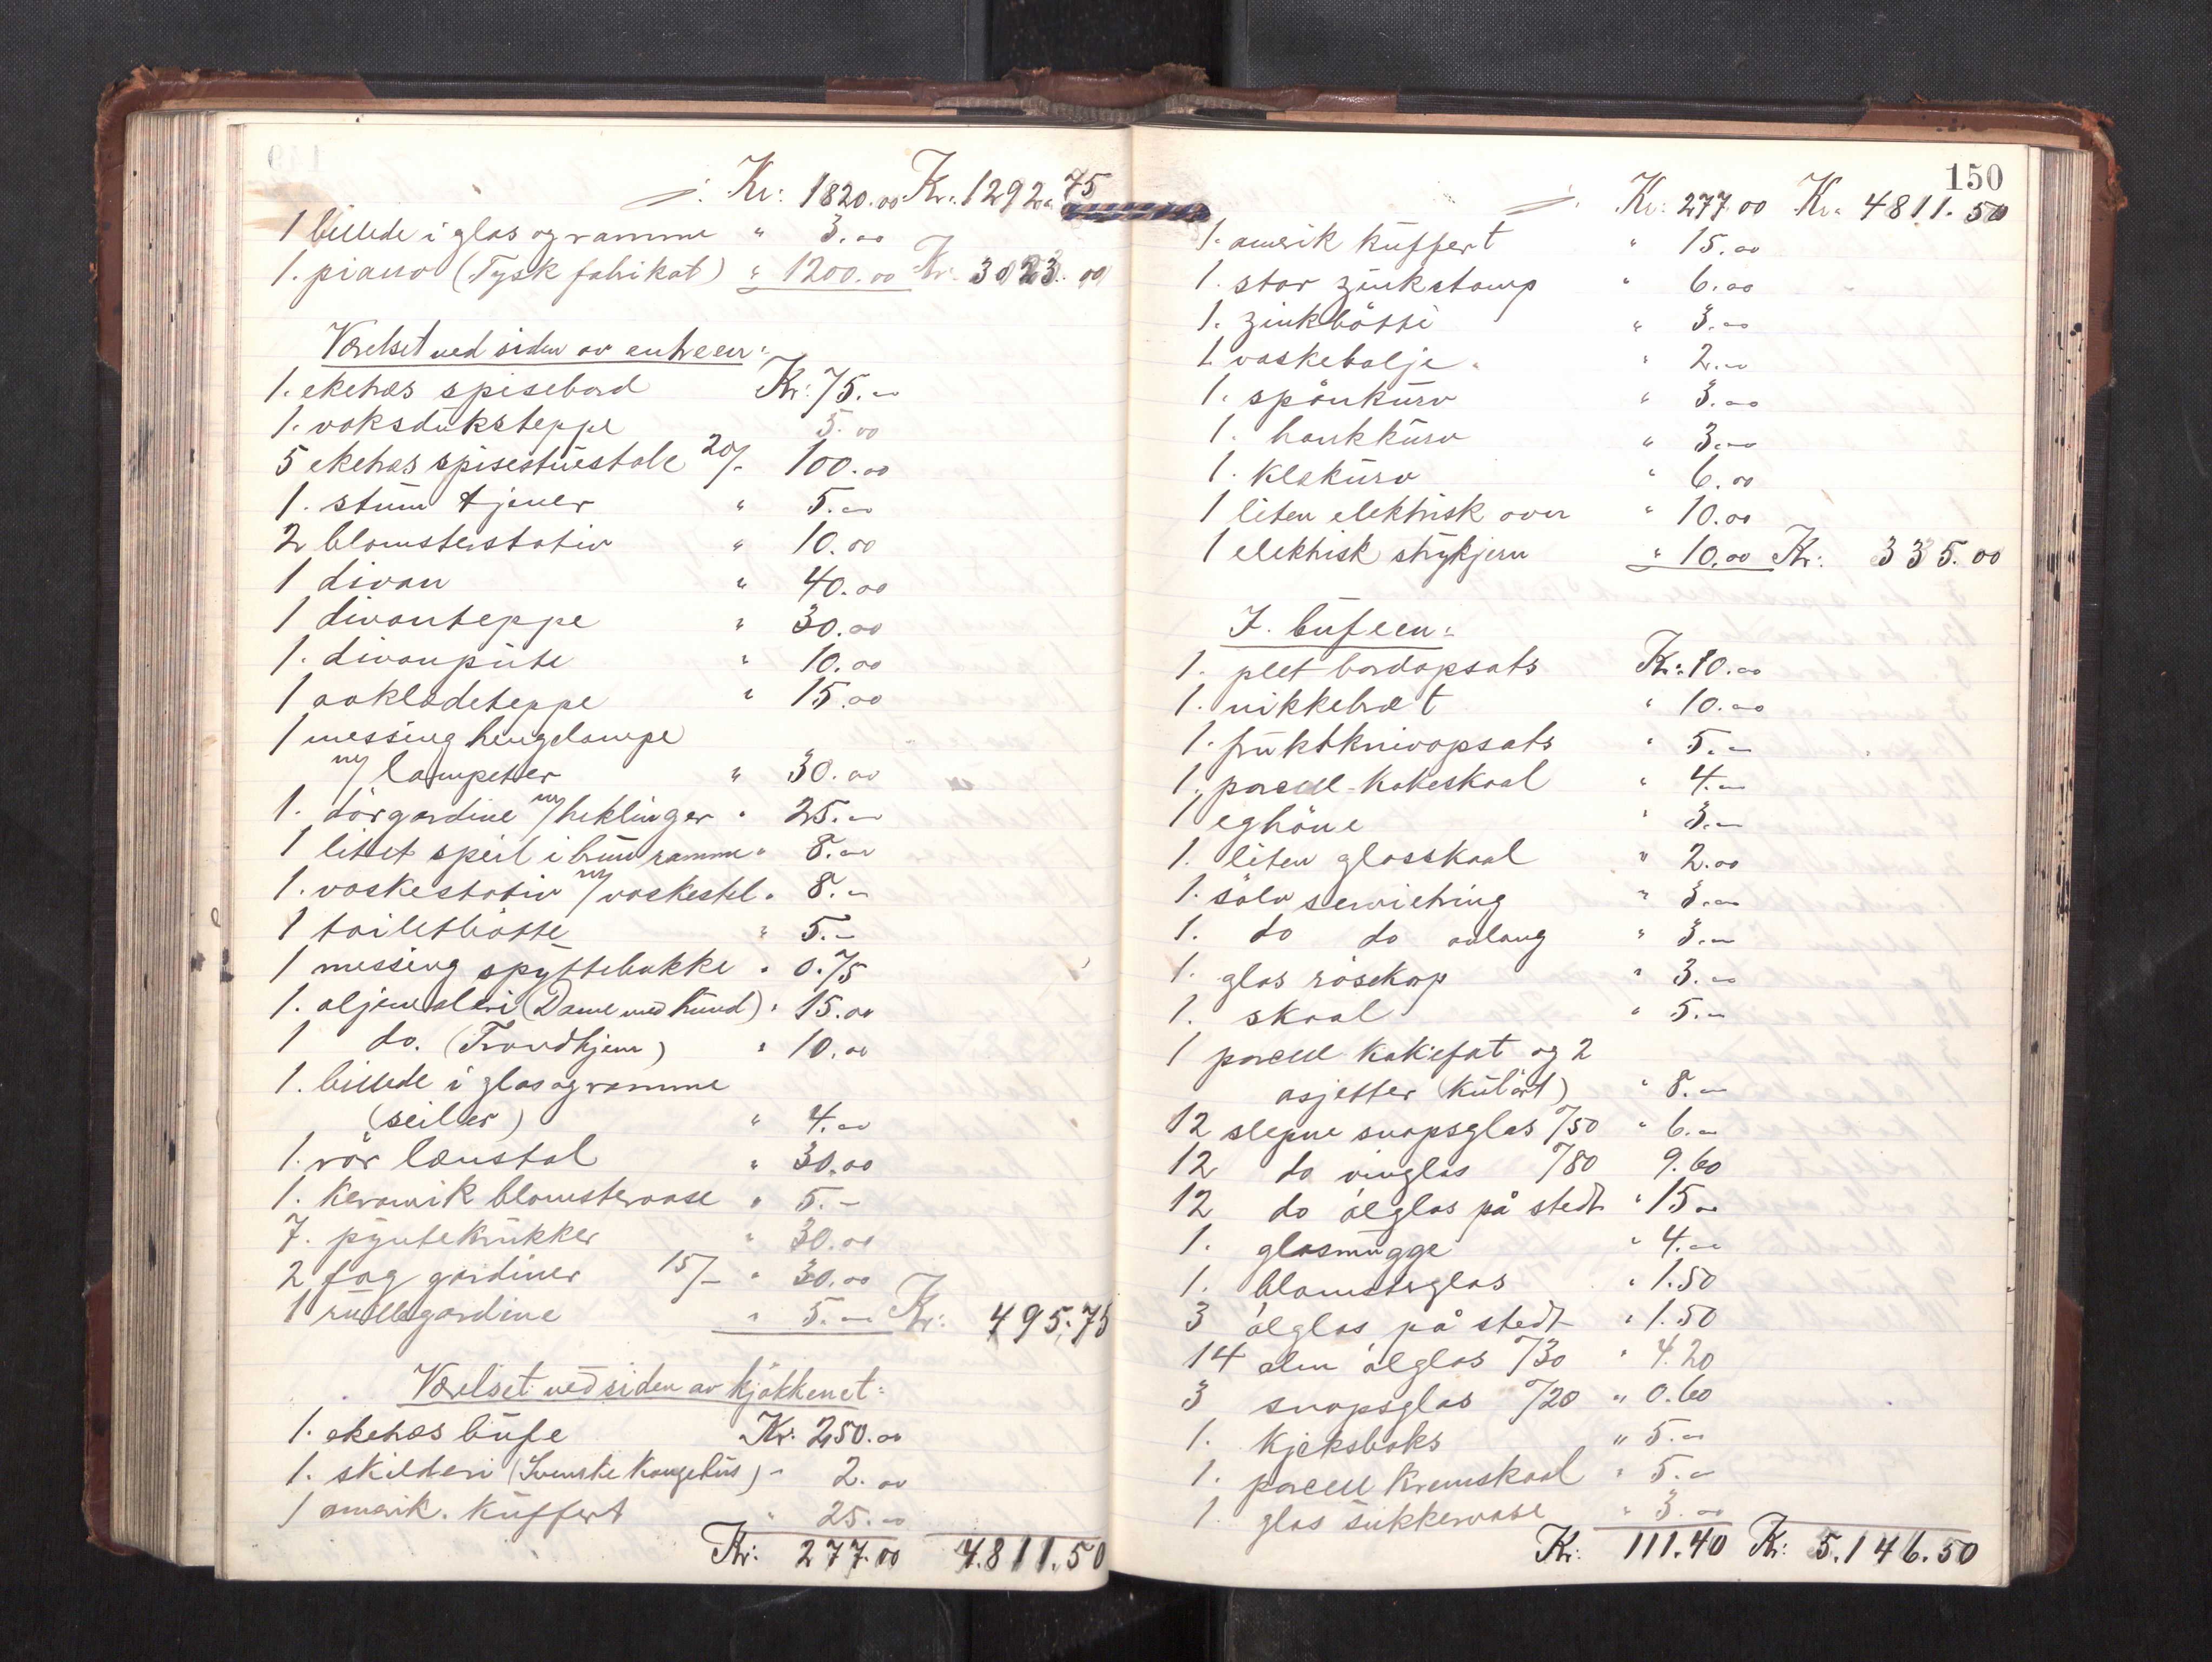 Kr: 1820.00 Kr. 1292.75
1 billede i glas og ramme " 3.00
1. piano (Tysk fabrikat) " 1200.00 Kr. 3023.00
Værelset ved siden av entreen:
1. eketræs spisebord Kr: 75.00
1. voksduksteppe 5.00
5 eketræs spisestuestole 20/- 100.00
1. stum tjener " 5.00
2 blomsterstativ " 10.00
1 divan " 40.00
1 divanteppe " 30.00
1. divanpute " 10.00
1 aaklædeteppe " 15.00
1 messing hengelampe
m/ lampetter " 30.00
1. dörgardine m/ heklinger " 25.00
1 litet speil i brun ramme " 8.00
1. vaskestativ m/ vaskestel " 8.-
1 toiletbötte " 5.-
1 messing spyttebakke " 0.75
1. oljemaleri (Dame med hund) " 15.00
1 do. (Trondhjem) " 10.00
1. billede i glas og ramme
(seiler) " 4.00
1. rör lænstol " 30.00
1. keramik blomstervase " 5.-
7. pyntekrukker " 30.00
2 fag gardiner 15/- " 30.00
1 rullegardine " 5.00 Kr: 495.75
Værelset ved siden av kjökkenet:
1. eketræs bufe Kr: 250.00
1. skilderi (Svenske Kongehus) " 2.00
1 amerik. kuffert " 25.00
Kr: 277.00 4.811.50
150
Kr: 277.00 Kr. 4811.50
1. amerik kuffert " 15.00
1. stor zinkstamp " 6.00
1. zinkbötte " 3.00
1. vaskebalje " 2.00
1. spönkurv " 3.00
1. hankkurv " 3.00
1. kleskurv " 6.00
1 liten elektrisk oven " 10.00
1 elektrisk strykjern " 10.00 Kr: 335.00
I. bufeen:
1. plet bordopsats Kr: 10.00
1. nikkelbræt " 10.00
1. fruktknivopsats " 5.-
1. porcell-kakeskaal " 4.-
1 eghöne " 3.-
1. liten glasskaal " 2.00
1. sölv servietring " 3.00
1. do do avlang " 3.-
1. glas röskop " 3.00
1. skaal " 5.-
1 porcell kakefat og 2
asjetter (kulört) " 8.-
12 slepne snapsglas /50 " 6.-
12 do vinglas /80 9.60
12 do ölglas på stedt " 15.00
1. glasmugge " 4.00
1. blomsterglas " 1.50
3 ölglas på stedt " 1.50
14 alm ölglas /30 " 4.20
3 snapsglas /20 " 0.60
1. kjeksboks " 5.00
1. porcell kremskaal " 5.-
1. glas sukkervase " 3.00
Kr: 111.40 Kr: 5.146.50